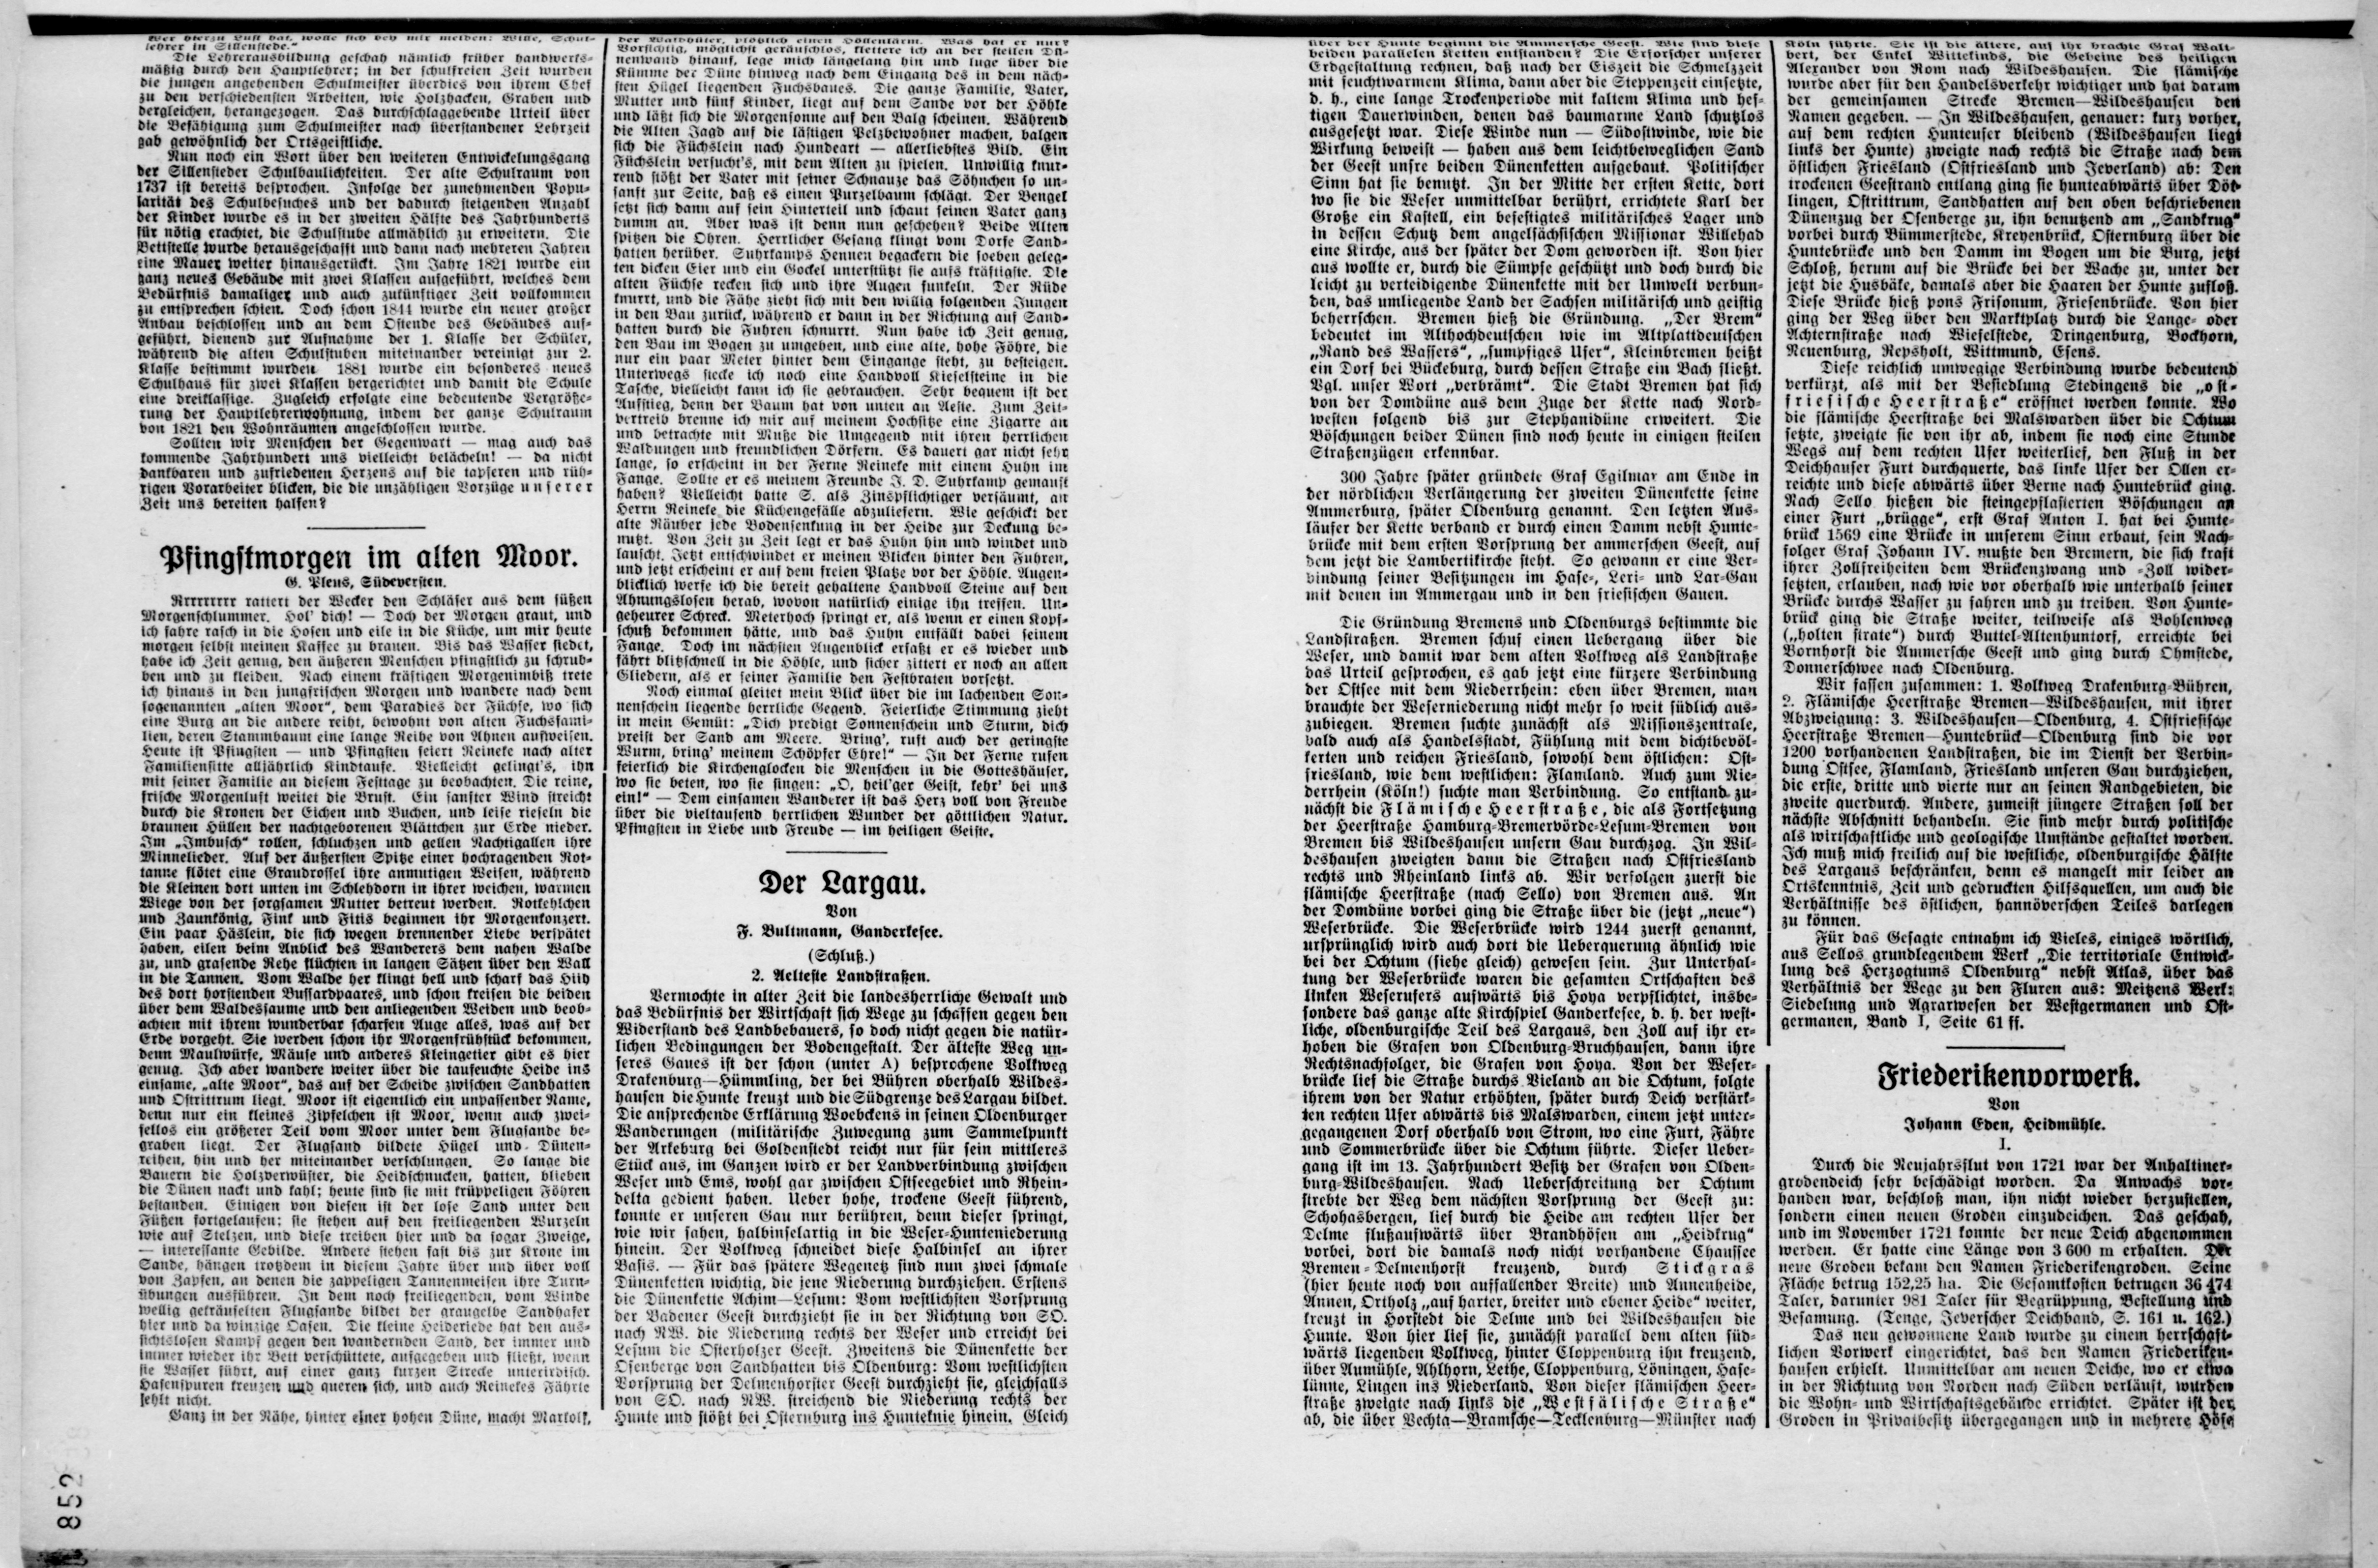 wer hierzu Lust hat, wolle sich bey mir melden: Wilke, Schul-
lehrer in Sillenstede."
Die Lehrerausbildung geschah nämlich früher handwerks-
mäßig durch den Hauptlehrer; in der schulfreien Zeit wurden
die jungen angehenden Schulmeister überdies von ihrem Chef
zu den verschiedensten Arbeiten, wie Holzhacken, Graben und
dergleichen, herangezogen. Das durchschlaggebende Urteil über
die Befähigung zum Schulmeister nach überstandener Lehrzeit
gab gewöhnlich der Ortsgeistliche.
Nun noch ein Wort über den weiteren Entwickelungsgang
der Sillensteder Schulbaulichkeiten. Der alte Schulraum von
1737 ist bereits besprochen. Infolge der zunehmenden Popu-
larität des Schulbesuches und der dadurch steigenden Anzahl
der Kinder wurde es in der zweiten Hälfte des Jahrhunderts
für nötig erachtet, die Schulstube allmählich zu erweitern. Die
Bettstelle wurde herausgeschafft und dann nach mehreren Jahren
eine Mauer weiter hinausgerückt. Im Jahre 1821 wurde ein
ganz neues Gebäude mit zwei Klassen aufgeführt, welches dem
Bedürfnis damaliger und auch zukünftiger Zeit vollkommen
zu entsprechen schien. Doch schon 1844 wurde ein neuer großer
Anbau beschlossen und an dem Ostende des Gebäudes auf-
geführt, dienend zur Aufnahme der 1. Klasse der Schüler,
während die alten Schulstuben miteinander vereinigt zur 2.
Klasse bestimmt wurden 1881 wurde ein besonderes neues
Schulhaus für zwei Klassen hergerichtet und damit die Schule
eine dreiklassige. Zugleich erfolgte eine bedeutende Vergröße-
rung der Hauptlehrerwohnung, indem der ganze Schulraum
von 1821 den Wohnräumen angeschlossen wurde.
Sollten wir Menschen der Gegenwart — mag auch das
kommende Jahrhundert uns vielleicht belächeln! — da nicht
dankbaren und zufriedenen Herzens auf die tapferen und rüh-
rigen Vorarbeiter blicken, die die unzähligen Vorzüge unserer
Zeit uns bereiten halfen?
Pfingstmorgen im alten Moor.
G. Plens, Südeversten.
Rrrrrrrr rattert der Wecker den Schläfer aus dem süßen
Morgenschlummer. Hol' dich! — Doch der Morgen graut, und
ich fahre rasch in die Hosen und eile in die Küche, um mir heute
morgen selbst meinen Kaffee zu brauen. Bis das Wasser siedet,
habe ich Zeit genug, den äußeren Menschen pfingstlich zu schrub-
ben und zu kleiden. Nach einem kräftigen Morgenimbiß trete
ich hinaus in den jungfrischen Morgen und wandere nach dem
sogenannten „alten Moor", dem Paradies der Füchse, wo sich
eine Burg an die andere reiht, bewohnt von alten Fuchsfami-
lien, deren Stammbaum eine lange Reihe von Ahnen aufweisen.
Heute ist Pfingsten — und Pfingsten feiert Reineke nach alter
Familiensitte alljährlich Kindtaufe. Vielleicht gelingt's, ihn
mit seiner Familie an diesem Festtage zu beobachten. Die reine,
frische Morgenluft weitet die Brust. Ein sanfter Wind streicht
durch die Kronen der Eichen und Buchen, und leise rieseln die
braunen Hüllen der nachtgeborenen Blättchen zur Erde nieder.
Im „Imbusch" rollen, schluchzen und gellen Nachtigallen ihre
Minnelieder. Auf der äußersten Spitze einer hochragenden Rot-
tanne flötet eine Graudrossel ihre anmutigen Weisen, während
die Kleinen dort unten im Schlehdorn in ihrer weichen, warmen
Wiege von der sorgsamen Mutter betreut werden. Rotkehlchen
und Zaunkönig, Fink und Fitis beginnen ihr Morgenkonzert.
Ein paar Häslein, die sich wegen brennender Liebe verspätet
haben, eilen beim Anblick des Wanderers dem nahen Walde
zu, und grasende Rehe flüchten in langen Sätzen über den Wall
in die Tannen. Vom Walde her klingt hell und scharf das Hiih
des dort horstenden Bussardpaares, und schon kreisen die beiden
über dem Waldessaume und den anliegenden Weiden und beob-
achten mit ihrem wunderbar scharfen Auge alles, was auf der
Erde vorgeht. Sie werden schon ihr Morgenfrühstück bekommen,
denn Maulwürfe, Mäuse und anderes Kleingetier gibt es hier
genug. Ich aber wandere weiter über die taufeuchte Heide ins
einsame, „alte Moor", das auf der Scheide zwischen Sandhatten
und Ostrittrum liegt. Moor ist eigentlich ein unpassender Name,
denn nur ein kleines Zipfelchen ist Moor, wenn auch zwei-
fellos ein größerer Teil vom Moor unter dem Flugsande be-
graben liegt. Der Flugsand bildete Hügel und Dünen-
reihen, hin und her miteinander verschlungen. So lange die
Bauern die Holzverwüster, die Heidschnucken, hatten, blieben
die Dünen nackt und kahl; heute sind sie mit krüppeligen Föhren
bestanden. Einigen von diesen ist der lose Sand unter den
Füßen fortgelaufen; sie stehen auf den freiliegenden Wurzeln
wie auf Stelzen, und diese treiben hier und da sogar Zweige,
— interessante Gebilde. Andere stehen fast bis zur Krone im
Sande, hängen trotzdem in diesem Jahre über und über voll
von Zapfen, an denen die zappeligen Tannenmeisen ihre Turn-
übungen ausführen. In dem noch freiliegenden, vom Winde
wellig gekräuselten Flugsande bildet der graugelbe Sandhafer
hier und da winzige Oasen. Die kleine Heideriede hat den aus-
sichtslosen Kampf gegen den wandernden Sand, der immer und
immer wieder ihr Bett verschüttete, aufgegeben und fließt, wenn
sie Wasser führt, auf einer ganz kurzen Strecke unterirdisch.
Hasenspuren kreuzen und queren sich, und auch Reinekes Fährte
fehlt nicht.
Ganz in der Nähe, hinter einer hohen Düne, macht Markolf,
der Waldhüter, plötzlich einen Höllenlärm. Was hat er nur?
Vorsichtig, möglichst geräuschlos, klettere ich an der steilen Dü-
nenwand hinauf, lege mich längelang hin und luge über die
Kümme der Düne hinweg nach dem Eingang des in dem näch-
sten Hügel liegenden Fuchsbaues. Die ganze Familie, Vater,
Mutter und fünf Kinder, liegt auf dem Sande vor der Höhle
und läßt sich die Morgensonne auf den Balg scheinen. Während
die Alten Jagd auf die lästigen Pelzbewohner machen, balgen
sich die Füchslein nach Hundeart — allerliebstes Bild. Ein
Füchslein versucht's, mit dem Alten zu spielen. Unwillig knur-
rend stößt der Vater mit seiner Schnauze das Söhnchen so un-
sanft zur Seite, daß es einen Purzelbaum schlägt. Der Bengel
setzt sich dann auf sein Hinterteil und schaut seinen Vater ganz
dumm an. Aber was ist denn nun geschehen? Beide Alten
spitzen die Ohren. Herrlicher Gesang klingt vom Dorfe Sand-
hatten herüber. Suhrkamps Hennen begackern die soeben geleg-
ten dicken Eier und ein Gockel unterstützt sie aufs kräftigste. Die
alten Füchse recken sich und ihre Augen funkeln. Der Rüde
knurrt, und die Fähe zieht sich mit den willig folgenden Jungen
in den Bau zurück, während er dann in der Richtung auf Sand-
hatten durch die Fuhren schnurrt. Nun habe ich Zeit genug,
den Bau im Bogen zu umgehen, und eine alte, hohe Föhre, die
nur ein paar Meter hinter dem Eingange steht, zu besteigen.
Unterwegs stecke ich noch eine Handvoll Kieselsteine in die
Tasche, vielleicht kann ich sie gebrauchen. Sehr bequem ist der
Aufstieg, denn der Baum hat von unten an Aeste. Zum Zeit-
vertreib brenne ich mir auf meinem Hochsitze eine Zigarre an
und betrachte mit Muße die Umgegend mit ihren herrlichen
Waldungen und freundlichen Dörfern. Es dauert gar nicht sehr
lange, so erscheint in der Ferne Reineke mit einem Huhn im
Fange. Sollte er es meinem Freunde J. D. Suhrkamp gemaust
haben? Vielleicht hatte S. als Zinspflichtiger versäumt, an
Herrn Reineke die Küchengefälle abzuliefern. Wie geschickt der
alte Räuber jede Bodensenkung in der Heide zur Deckung be-
nutzt. Von Zeit zu Zeit legt er das Huhn hin und windet und
lauscht. Jetzt entschwindet er meinen Blicken hinter den Fuhren,
und jetzt erscheint er auf dem freien Platze vor der Höhle. Augen-
blicklich werfe ich die bereit gehaltene Handvoll Steine auf den
Ahnungslosen herab, wovon natürlich einige ihn treffen. Un-
geheurer Schreck. Meterhoch springt er, als wenn er einen Kopf-
schuß bekommen hätte, und das Huhn entfällt dabei seinem
Fange. Doch im nächsten Augenblick erfaßt er es wieder und
fährt blitzschnell in die Höhle, und sicher zittert er noch an allen
Gliedern, als er seiner Familie den Festbraten vorsetzt.
Noch einmal gleitet mein Blick über die im lachenden Son-
nenschein liegende herrliche Gegend. Feierliche Stimmung zieht
in mein Gemüt: „Dich predigt Sonnenschein und Sturm, dich
preist der Sand am Meere. Bring', ruft auch der geringste
Wurm, bring' meinem Schöpfer Ehre!" — In der Ferne rufen
feierlich die Kirchenglocken die Menschen in die Gotteshäuser,
wo sie beten, wo sie singen: „O, heil'ger Geist, kehr' bei uns
ein!" — Dem einsamen Wanderer ist das Herz voll von Freude
über die vieltausend herrlichen Wunder der göttlichen Natur.
Pfingsten in Liebe und Freude — im heiligen Geiste.
Der Largau.
Von
F. Bultmann, Ganderkesee.
(Schluß.)
2. Aelteste Landstraßen.
Vermochte in alter Zeit die landesherrliche Gewalt und
das Bedürfnis der Wirtschaft sich Wege zu schaffen gegen den
Widerstand des Landbebauers, so doch nicht gegen die natür-
lichen Bedingungen der Bodengestalt. Der älteste Weg un-
seres Gaues ist der schon (unter A) besprochene Volkweg
Drakenburg—Hümmling, der bei Bühren oberhalb Wildes-
hausen die Hunte kreuzt und die Südgrenze des Largau bildet.
Die ansprechende Erklärung Woebckens in seinen Oldenburger
Wanderungen (militärische Zuwegung zum Sammelpunkt
der Arkeburg bei Goldenstedt reicht nur für sein mittleres
Stück aus, im Ganzen wird er der Landverbindung zwischen
Weser und Ems, wohl gar zwischen Ostseegebiet und Rhein-
delta gedient haben. Ueber hohe, trockene Geest führend,
konnte er unseren Gau nur berühren, denn dieser springt,
wie wir sahen, halbinselartig in die Weser-Hunteniederung
hinein. Der Volkweg schneidet diese Halbinsel an ihrer
Basis. — Für das spätere Wegenetz sind nun zwei schmale
Dünenketten wichtig, die jene Niederung durchziehen. Erstens
die Dünenkette Achim—Lesum: Vom westlichsten Vorsprung
der Badener Geest durchzieht sie in der Richtung von SO.
nach NW. die Niederung rechts der Weser und erreicht bei
Lesum die Osterholzer Geest. Zweitens die Dünenkette der
Osenberge von Sandhatten bis Oldenburg: Vom westlichsten
Vorsprung der Delmenhorster Geest durchzieht sie, gleichfalls
von SO. nach NW. streichend die Niederung rechts der
Hunte und stößt bei Osternburg ins Hunteknie hinein. Gleich
über der Hunte beginnt die Ammersche Geest. Wie sind diese
beiden parallelen Ketten entstanden? Die Erforscher unserer
Erdgestaltung rechnen, daß nach der Eiszeit die Schmelzzeit
mit feuchtwarmem Klima, dann aber die Steppenzeit einsetzte,
d. h., eine lange Trockenperiode mit kaltem Klima und hef-
tigen Dauerwinden, denen das baumarme Land schutzlos
ausgesetzt war. Diese Winde nun — Südostwinde, wie die
Wirkung beweist — haben aus dem leichtbeweglichen Sand
der Geest unsre beiden Dünenketten aufgebaut. Politischer
Sinn hat sie benutzt. In der Mitte der ersten Kette, dort
wo sie die Weser unmittelbar berührt, errichtete Karl der
Große ein Kastell, ein befestigtes militärisches Lager und
in dessen Schutz dem angelsächsischen Missionar Willehad
eine Kirche, aus der später der Dom geworden ist. Von hier
aus wollte er, durch die Sümpfe geschützt und doch durch die
leicht zu verteidigende Dünenkette mit der Umwelt verbun-
den, das umliegende Land der Sachsen militärisch und geistig
beherrschen. Bremen hieß die Gründung. „Der Brem"
bedeutet im Althochdeutschen wie im Altplattdeutschen
„Rand des Wassers", „sumpfiges Ufer", Kleinbremen heißt
ein Dorf bei Bückeburg, durch dessen Straße ein Bach fließt.
Vgl. unser Wort „verbrämt". Die Stadt Bremen hat sich
von der Domdüne aus dem Zuge der Kette nach Nord-
westen folgend bis zur Stephanidüne erweitert. Die
Böschungen beider Dünen sind noch heute in einigen steilen
Straßenzügen erkennbar.
300 Jahre später gründete Graf Egilmar am Ende in
der nördlichen Verlängerung der zweiten Dünenkette seine
Ammerburg, später Oldenburg genannt. Den letzten Aus-
läufer der Kette verband er durch einen Damm nebst Hunte-
brücke mit dem ersten Vorsprung der ammerschen Geest, auf
dem jetzt die Lambertikirche steht. So gewann er eine Ver-
bindung seiner Besitzungen im Hase-, Leri- und Lar-Gau
mit denen im Ammergau und in den friesischen Gauen.
Die Gründung Bremens und Oldenburgs bestimmte die
Landstraßen. Bremen schuf einen Uebergang über die
Weser, und damit war dem alten Volkweg als Landstraße
das Urteil gesprochen, es gab jetzt eine kürzere Verbindung
der Ostsee mit dem Niederrhein: eben über Bremen, man
brauchte der Weserniederung nicht mehr so weit südlich aus-
zubiegen. Bremen suchte zunächst als Missionszentrale,
bald auch als Handelsstadt, Fühlung mit dem dichtbevöl-
kerten und reichen Friesland, sowohl dem östlichen: Ost-
friesland, wie dem westlichen: Flamland. Auch zum Nie-
derrhein (Köln!) suchte man Verbindung. So entstand zu-
nächst die Flämische Heerstraße, die als Fortsetzung
der Heerstraße Hamburg-Bremervörde-Lesum-Bremen von
Bremen bis Wildeshausen unsern Gau durchzog. In Wil-
deshausen zweigten dann die Straßen nach Ostfriesland
rechts und Rheinland links ab. Wir verfolgen zuerst die
flämische Heerstraße (nach Sello) von Bremen aus. An
der Domdüne vorbei ging die Straße über die (jetzt „neue")
Weserbrücke. Die Weserbrücke wird 1244 zuerst genannt,
ursprünglich wird auch dort die Ueberquerung ähnlich wie
bei der Ochtum (siehe gleich) gewesen sein. Zur Unterhal-
tung der Weserbrücke waren die gesamten Ortschaften des
linken Weserufers aufwärts bis Hoya verpflichtet, insbe-
sondere das ganze alte Kirchspiel Ganderkesee, d. h. der west-
liche, oldenburgische Teil des Largaus, den Zoll auf ihr er-
hoben die Grafen von Oldenburg-Bruchhausen, dann ihre
Rechtsnachfolger, die Grafen von Hoya. Von der Weser-
brücke lief die Straße durchs Vieland an die Ochtum, folgte
ihrem von der Natur erhöhten, später durch Deich verstärk-
ten rechten Ufer abwärts bis Malswarden, einem jetzt unter-
gegangenen Dorf oberhalb von Strom, wo eine Furt, Fähre
und Sommerbrücke über die Ochtum führte. Dieser Ueber-
gang ist im 13. Jahrhundert Besitz der Grafen von Olden-
burg-Wildeshausen. Nach Ueberschreitung der Ochtum
strebte der Weg dem nächsten Vorsprung der Geest zu:
Schohasbergen, lief durch die Heide am rechten Ufer der
Delme flußaufwärts über Brandhöfen am „Heidkrug"
vorbei, dort die damals noch nicht vorhandene Chaussee
Bremen-Delmenhorst kreuzend, durch Stickgras
(hier heute noch von auffallender Breite) und Annenheide,
Annen, Ortholz „auf harter, breiter und ebener Heide" weiter,
kreuzt in Horstedt die Delme und bei Wildeshausen die
Hunte. Von hier lief sie, zunächst parallel dem alten süd-
wärts liegenden Volkweg, hinter Cloppenburg ihn kreuzend,
über Aumühle, Ahlhorn, Lethe, Cloppenburg, Löningen, Hase-
lünne, Lingen ins Niederland. Von dieser flämischen Heer-
straße zweigte nach links die „Westfälische Straße"
ab, die über Vechta—Bramsche—Tecklenburg—Münster nach
Köln führte. Sie ist die ältere, auf ihr brachte Graf Walt-
bert, der Enkel Wittekinds, die Gebeine des heiligen
Alexander von Rom nach Wildeshausen. Die flämische
wurde aber für den Handelsverkehr wichtiger und hat darum
der gemeinsamen Strecke Bremen—Wildeshausen den
Namen gegeben. — In Wildeshausen, genauer: kurz vorher,
auf dem rechten Hunteufer bleibend (Wildeshausen liegt
links der Hunte) zweigte nach rechts die Straße nach dem
östlichen Friesland (Ostfriesland und Jeverland) ab: Den
trockenen Geestrand entlang ging sie hunteabwärts über Döt-
lingen, Ostrittrum, Sandhatten auf den oben beschriebenen
Dünenzug der Osenberge zu, ihn benutzend am „Sandkrug"
vorbei durch Bümmerstede, Kreyenbrück, Osternburg über die
Huntebrücke und den Damm im Bogen um die Burg, jetzt
Schloß, herum auf die Brücke bei der Wache zu, unter der
jetzt die Husbäke, damals aber die Haaren der Hunte zufloß.
Diese Brücke hieß pons Frisonum, Friesenbrücke. Von hier
ging der Weg über den Marktplatz durch die Lange- oder
Achternstraße nach Wiefelstede, Dringenburg, Bockhorn,
Neuenburg, Repsholt, Wittmund, Esens.
Diese reichlich umwegige Verbindung wurde bedeutend
verkürzt, als mit der Besiedlung Stedingens die „ost-
friesische Heerstraße" eröffnet werden konnte. Wo
die flämische Heerstraße bei Malswarden über die Ochtum
setzte, zweigte sie von ihr ab, indem sie noch eine Stunde
Wegs auf dem rechten Ufer weiterlief, den Fluß in der
Deichhauser Furt durchquerte, das linke Ufer der Ollen er-
reichte und diese abwärts über Berne nach Huntebrück ging.
Nach Sello hießen die steingepflasterten Böschungen an
einer Furt „brügge", erst Graf Anton I. hat bei Hunte-
brück 1569 eine Brücke in unserem Sinn erbaut, sein Nach-
folger Graf Johann IV. mußte den Bremern, die sich kraft
ihrer Zollfreiheiten dem Brückenzwang und -Zoll wider-
setzten, erlauben, nach wie vor oberhalb wie unterhalb seiner
Brücke durchs Wasser zu fahren und zu treiben. Von Hunte-
brück ging die Straße weiter, teilweise als Bohlenweg
(„holten strate") durch Buttel-Altenhuntorf, erreichte bei
Bornhorst die Ammersche Geest und ging durch Ohmstede,
Donnerschwee nach Oldenburg.
Wir fassen zusammen: 1. Volkweg Drakenburg-Bühren,
2. Flämische Heerstraße Bremen—Wildeshausen, mit ihrer
Abzweigung: 3. Wildeshausen—Oldenburg, 4. Ostfriesische
Heerstraße Bremen—Huntebrück—Oldenburg sind die vor
1200 vorhandenen Landstraßen, die im Dienst der Verbin-
dung Ostsee, Flamland, Friesland unseren Gau durchziehen,
die erste, dritte und vierte nur an seinen Randgebieten, die
zweite querdurch. Andere, zumeist jüngere Straßen soll der
nächste Abschnitt behandeln. Sie sind mehr durch politische
als wirtschaftliche und geologische Umstände gestaltet worden.
Ich muß mich freilich auf die westliche, oldenburgische Hälfte
des Largaus beschränken, denn es mangelt mir leider an
Ortskenntnis, Zeit und gedruckten Hilfsquellen, um auch die
Verhältnisse des östlichen, hannöverschen Teiles darlegen
zu können.
Für das Gesagte entnahm ich Vieles, einiges wörtlich,
aus Sellos grundlegendem Werk „Die territoriale Entwick-
lung des Herzogtums Oldenburg" nebst Atlas, über das
Verhältnis der Wege zu den Fluren aus: Meitzens Werk:
Siedelung und Agrarwesen der Westgermanen und Ost-
germanen, Band I, Seite 61 ff.
Friederikenvorwerk.
Von
Johann Eden, Heidmühle.
I.
Durch die Neujahrsflut von 1721 war der Anhaltiner-
grodendeich sehr beschädigt worden. Da Anwachs vor-
handen war, beschloß man, ihn nicht wieder herzustellen,
sondern einen neuen Groden einzudeichen. Das geschah,
und im November 1721 konnte der neue Deich abgenommen
werden. Er hatte eine Länge von 3 600 m erhalten. Der
neue Groden bekam den Namen Friederikengroden. Seine
Fläche betrug 152,25 ha. Die Gesamtkosten betrugen 36 474
Taler, darunter 981 Taler für Begrüppung, Bestellung und
Besamung. (Tenge, Jeverscher Deichband, S. 161 u. 162.)
Das neu gewonnene Land wurde zu einem herrschaft-
lichen Vorwerk eingerichtet, das den Namen Friederiken-
hausen erhielt. Unmittelbar am neuen Deiche, wo er etwa
in der Richtung von Norden nach Süden verläuft, wurden
die Wohn- und Wirtschaftsgebäude errichtet. Später ist der
Groden in Privatbesitz übergegangen und in mehrere Höfe
852